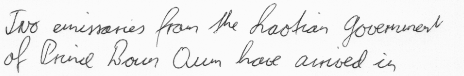 Two emissaries from the Laotian Government
of Prince Boun Oum have arrived in